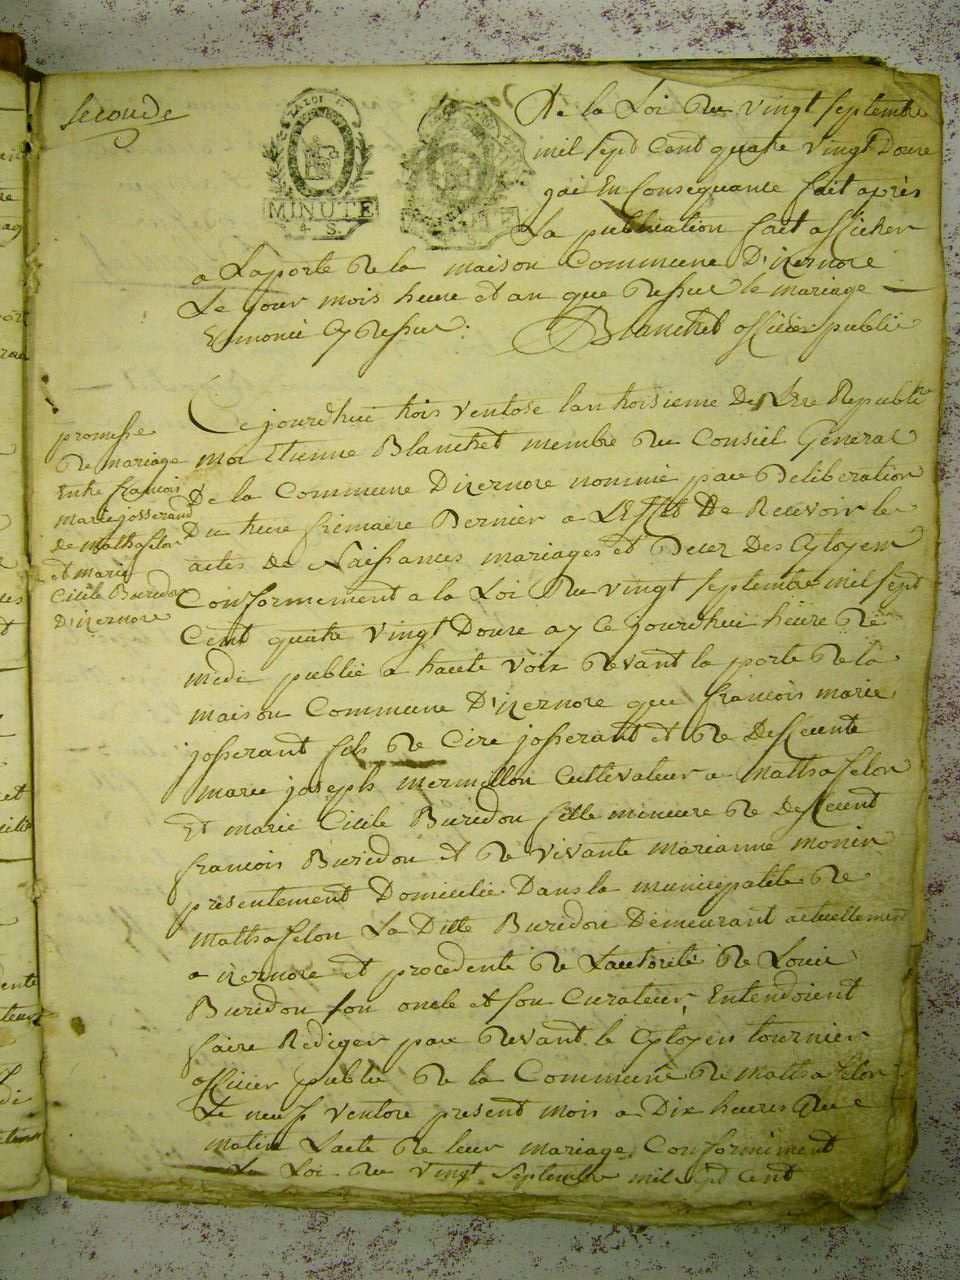 seconde
LA LOI
MINUTE
4. S.
De la Loi du vingt septembre
mil sept Cent quatre vingt Douze
jai En Consequance fait après
La publication fait afficher
a Laporte de la maison Commune D'izernore
Le jour mois heure et an que dessus le mariage
Enoncé Cy dessus. Blanchet officier public
promesse
de mariage
Entre francois
Marie josserand
de Matthafelon
et Marie
Cicile Buridon
D'izernore
Ce jourd'hui trois ventose lan troisieme De L'Ere Republice
moi Etienne Blanchet membre du Consiel General
De la Commune Dizernore nommé par Deliberation
Du treize frimaire Dernier a L'Effet De Recevoir les
actes de Naissances mariages et Decez Des Cytoyens
Conformement a la Loi Du vingt septembre mil sept
Cent quatre vingt Douze ay ce jourd'hui heure de
midi publié a haute voix devant la porte de la
maison Commune D'izernore que francois marie
josserant fils de Cire josserant et de Deffeunte
marie joseph mermillon Cultivateur a Matthafelon
Et marie Cicile Buridon fille mineure de deffeunt
francois Buridon et de vivante marianne monin
presentement Domicilié Dans la municipalité de
Matthafelon La Ditte Buridon Demeurant actuellement
a izernore et procedente de Lautorité de Louis
Buridon son oncle et son Curateur Entendoient
faire Rediger par devant le Cytoyen tournier
officier public de la Commune de Matthafelon
Le neuf ventose present mois a Dix heures du
matin Lacte de leur mariage, Conformément
La Loi du vingt septembre mil sept cent